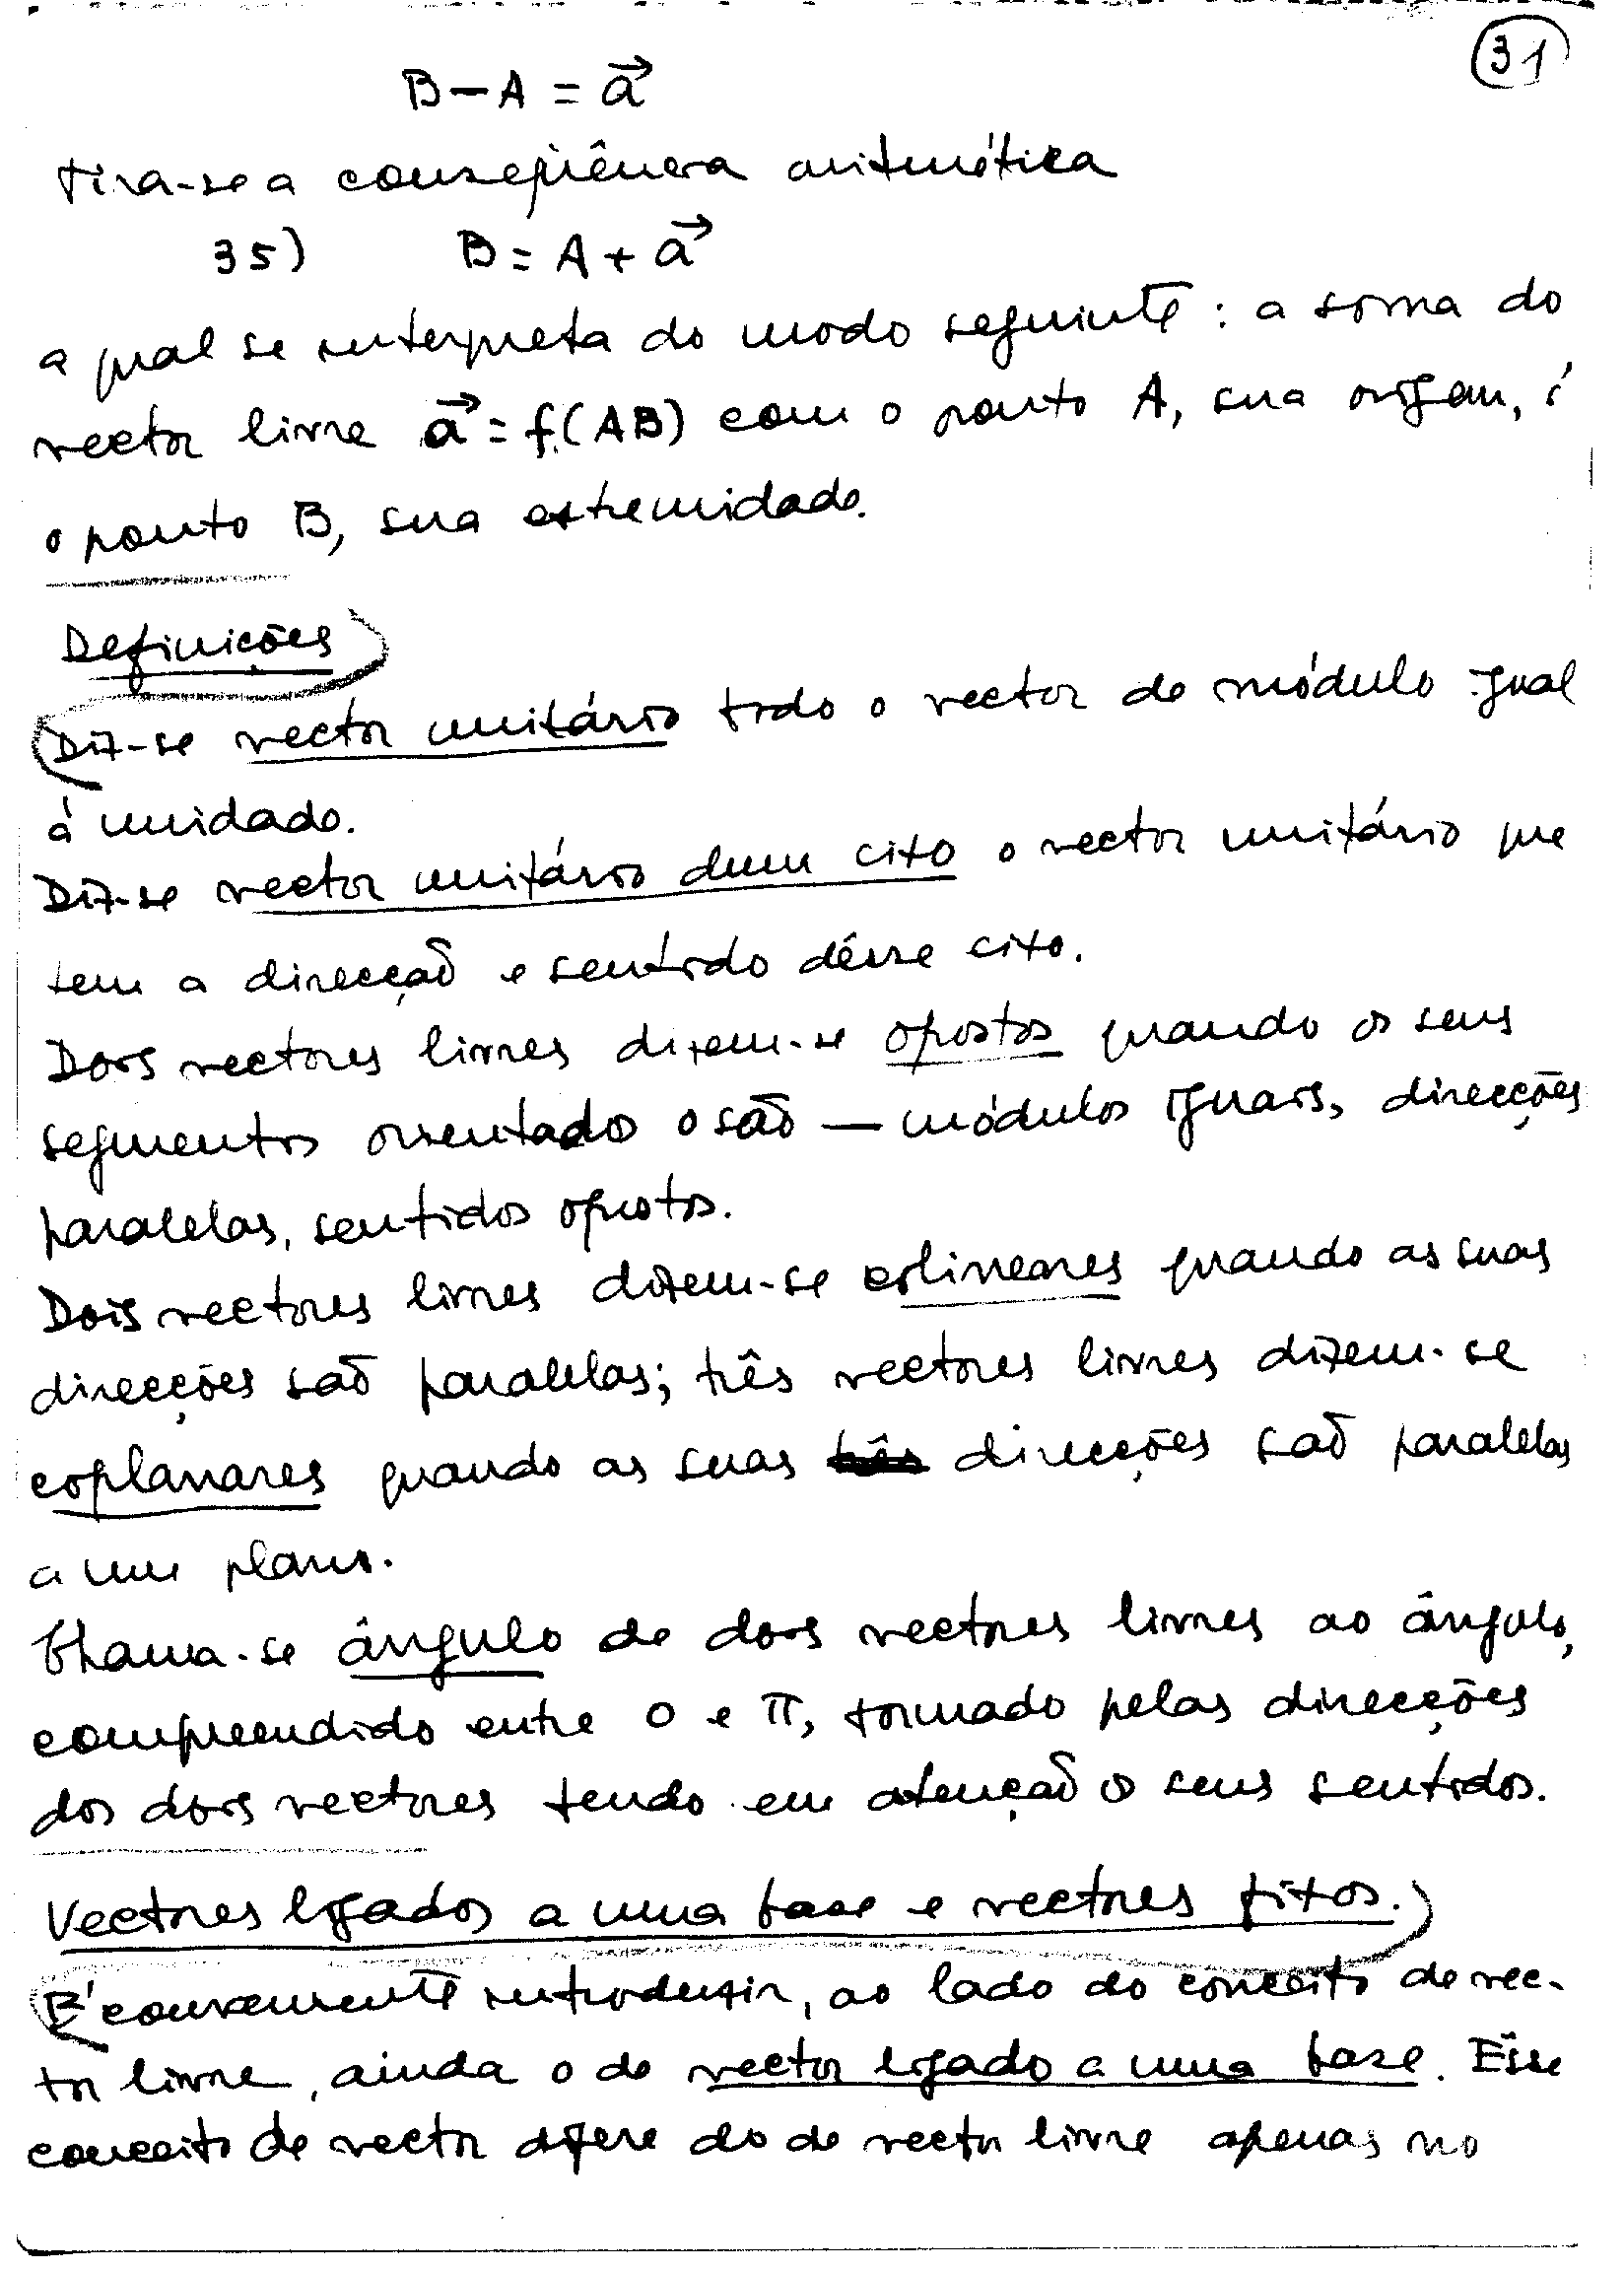 31
B – A = a⃗
tira-se a conseqüência aritmética
35) B = A + a⃗
a qual se interpreta do modo seguinte: a soma do
vector livre a⃗ = f(AB) com o ponto A, sua origem, é
o ponto B, sua extremidade.
Definições
Diz-se vector unitário todo o vector de módulo igual
à unidade.
Diz-se vector unitário dum eixo o vector unitário que
tem a direcção e sentido dêsse eixo.
Dois vectores livres dizem-se opostos quando os seus
segmentos orientados o são — módulos iguais, direcções
paralelas, sentidos opostos.
Dois vectores livres dizem-se colineares quando as suas
direcções são paralelas; três vectores livres dizem-se
coplanares quando as suas direcções são paralelas
a um plano.
Chama-se ângulo de dois vectores livres ao ângulo,
compreendido entre 0 e π, formado pelas direcções
dos dois vectores tendo em atenção os seus sentidos.
Vectores ligados a uma base e vectores fixos.
É conveniente introduzir, ao lado do conceito de vec-
tor livre, ainda o de vector ligado a uma base. Êsse
conceito de vector difere do de vector livre apenas no